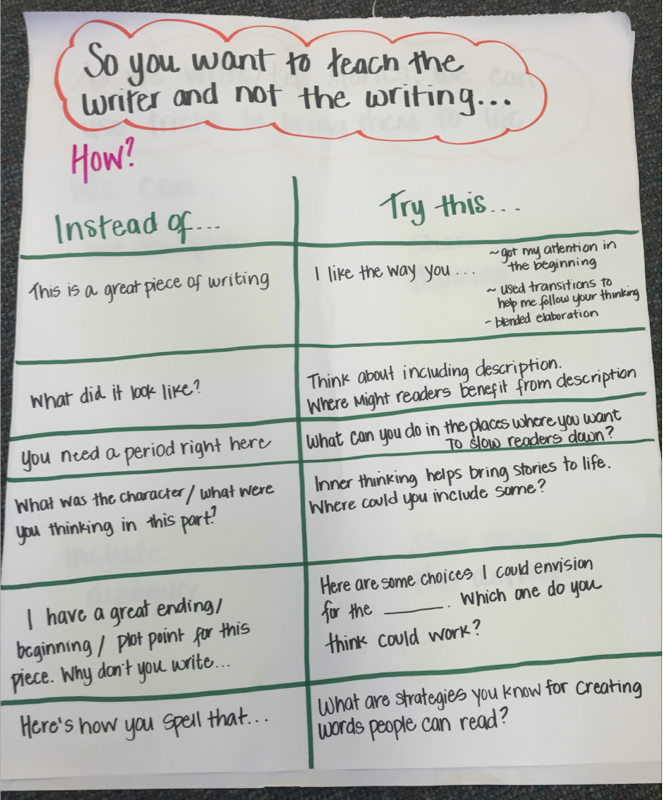 So you want to teach the
writer and not the writing...
How?
Instead of...
Try this...
This is a great piece of writing
I like the way you...
~ got my attention in
the beginning
~ used transitions to
help me follow your thinking
- blended elaboration
What did it look like?
Think about including description.
Where Might readers benefit from description
you need a period right here
What can you do in the places where you want
To slow readers down?
What was the character/what were
you thinking in this part?
Inner thinking helps bring stories to life.
Where could you include some?
I have a great ending/
beginning/ plot point for this
piece. Why don't you write...
Here are some choices I could envision
for the ______. Which one do you
think could work?
Here's how you spell that...
What are strategies you know for creating
words people can read?